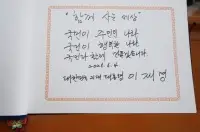 "함께 사는 세상"
국민이 주인인 나라
국민이 행복한 나라
국민과 함께 만들겠습니다.
2025. 6. 4
대한민국 21대 대통령 이 재 명